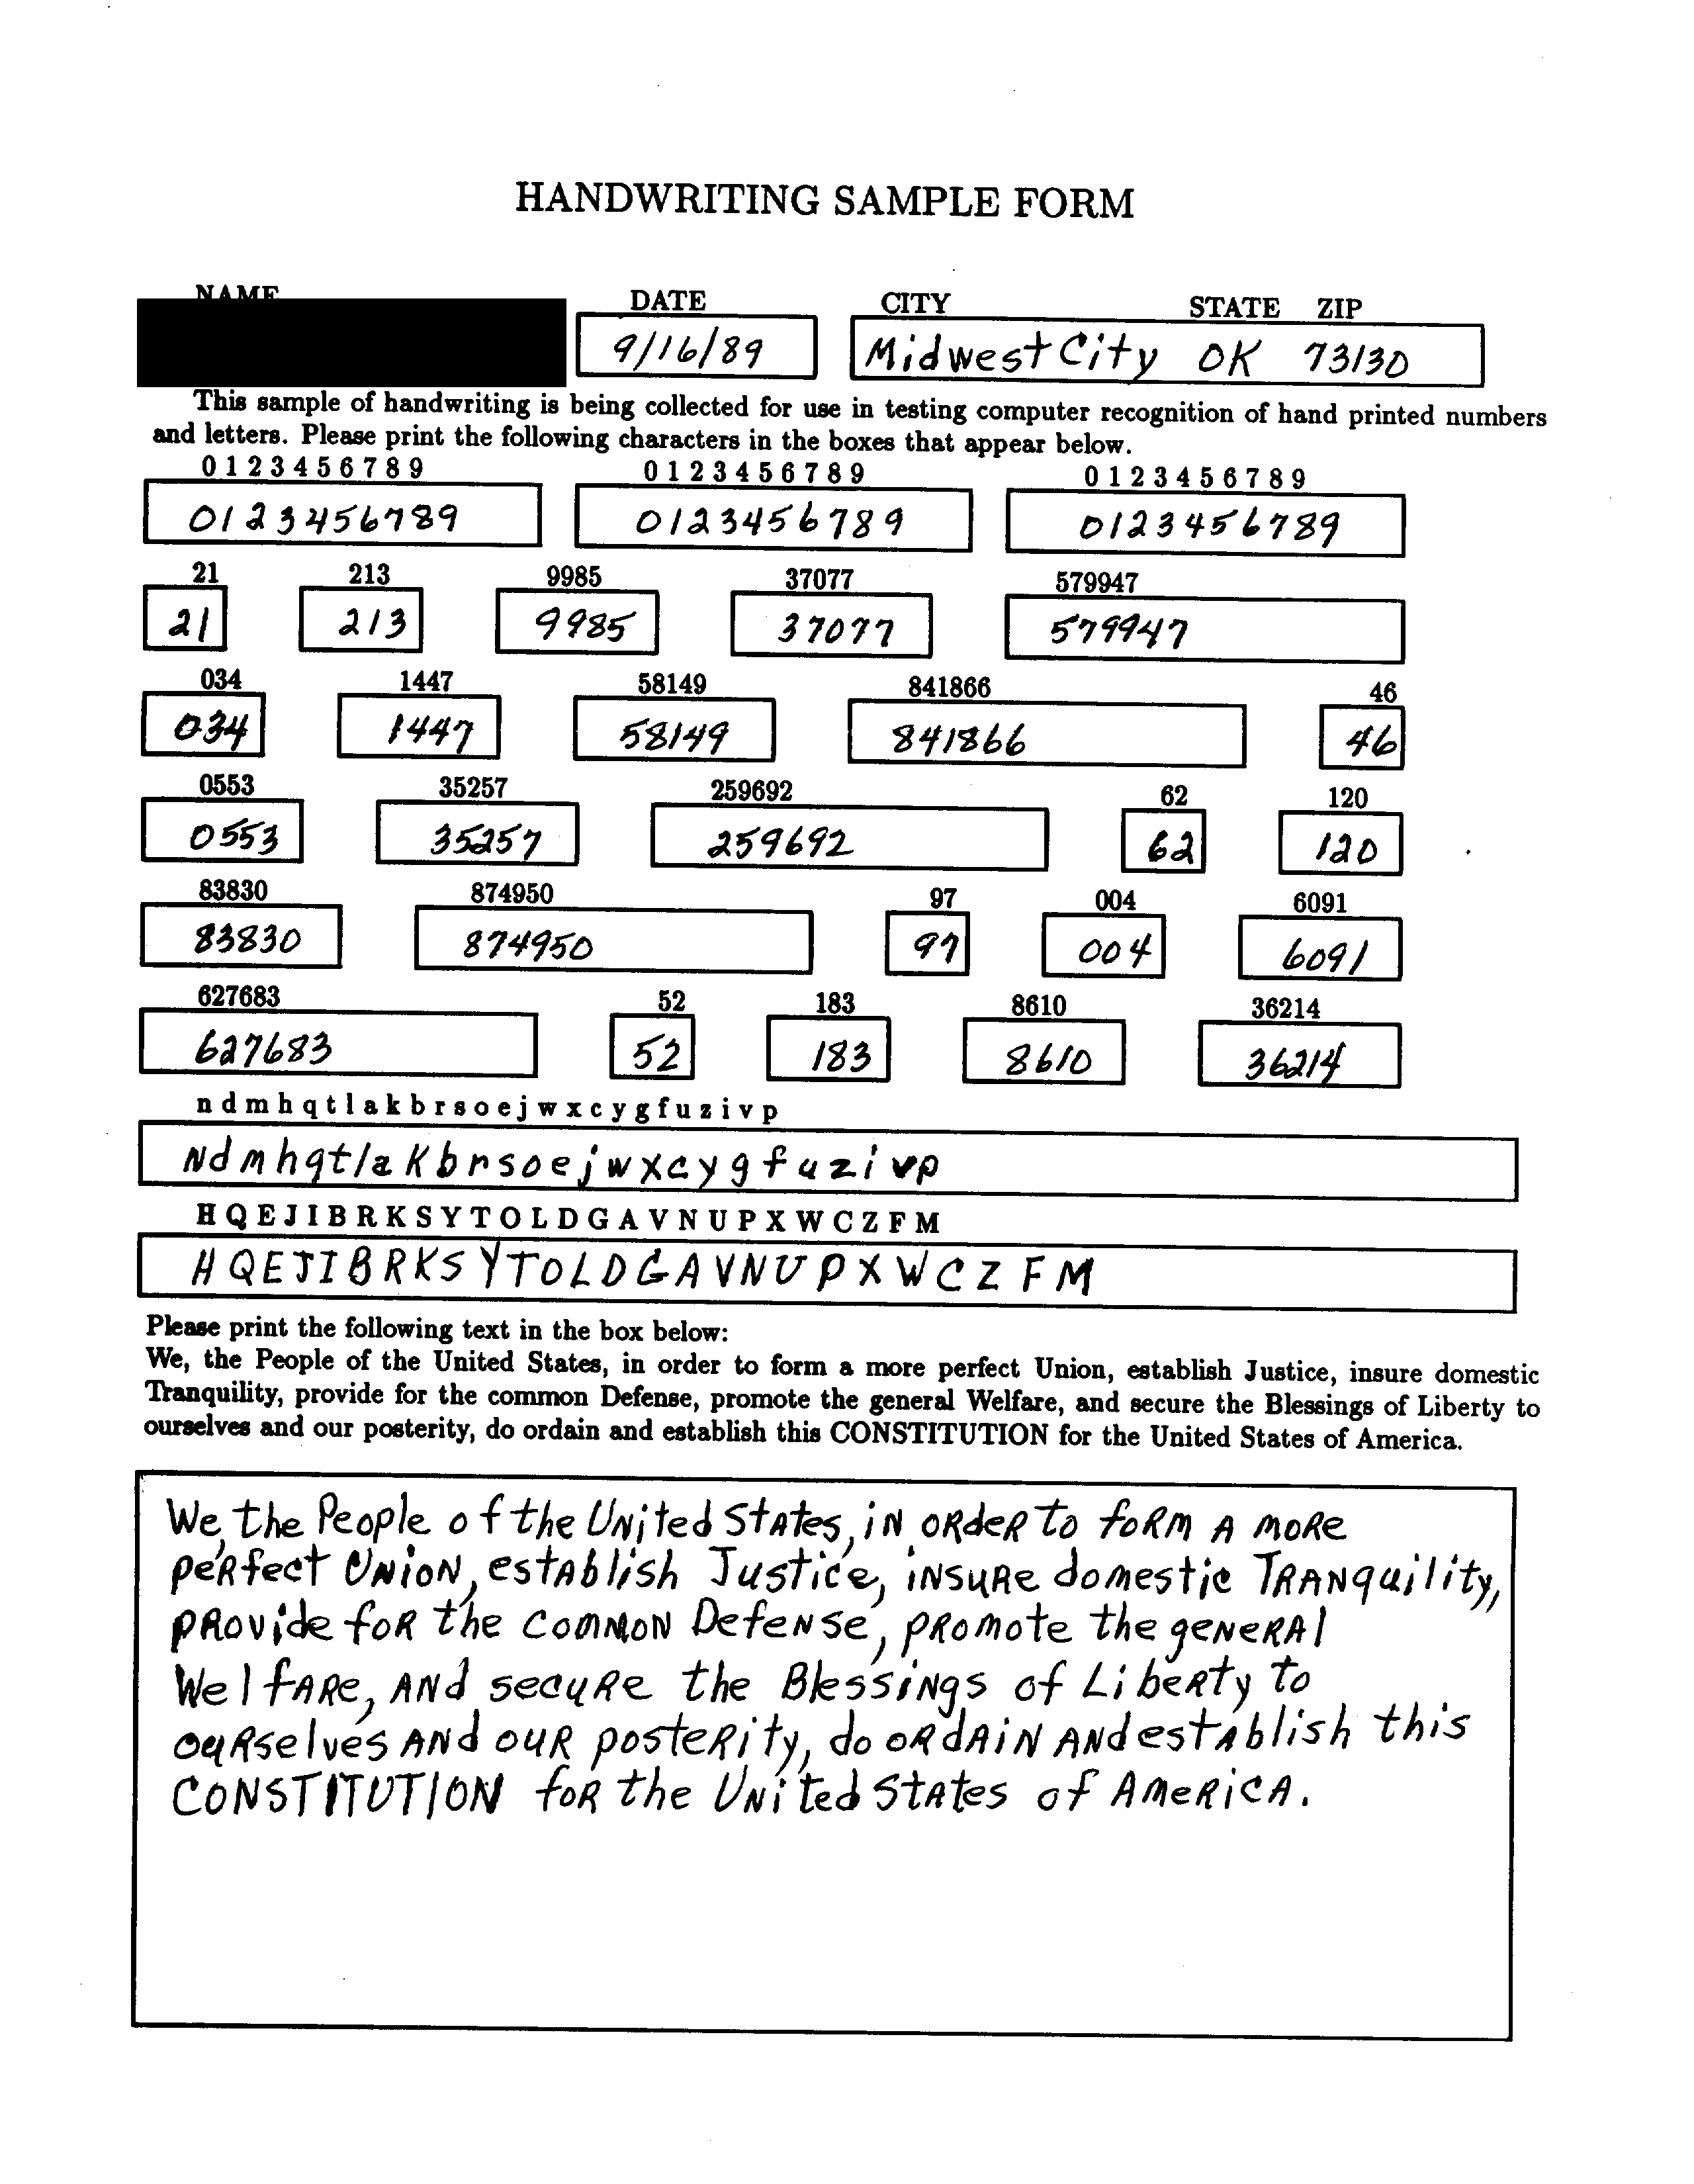 HANDWRITING SAMPLE FORM
NAME DATE CITY STATE ZIP
9/16/89 Midwest City OK 73130
This sample of handwriting is being collected for use in testing computer recognition of hand printed numbers
and letters. Please print the following characters in the boxes that appear below.
0 1 2 3 4 5 6 7 8 9 0 1 2 3 4 5 6 7 8 9 0 1 2 3 4 5 6 7 8 9
0123456789 0123456789 0123456789
21 213 9985 37077 579947
21 213 9985 37077 579947
034 1447 58149 841866 46
034 1447 58149 841866 46
0553 35257 259692 62 120
0553 35257 259692 62 120
83830 874950 97 004 6091
83830 874950 97 004 6091
627683 52 183 8610 36214
627683 52 183 8610 36214
n d m h q t l a k b r s o e j w x c y g f u z i v p
Ndmhqtlakbrsoejwxcygfuzivp
H Q E J I B R K S Y T O L D G A V N U P X W C Z F M
HQEJIBRKSYTOLDGAVNUPXWCZFM
Please print the following text in the box below:
We, the People of the United States, in order to form a more perfect Union, establish Justice, insure domestic
Tranquility, provide for the common Defense, promote the general Welfare, and secure the Blessings of Liberty to
ourselves and our posterity, do ordain and establish this CONSTITUTION for the United States of America.
We, the People of the UNited StAtes, iN ORdeR to foRM A MoRe
peRfect UNioN, estAblish Justice, iNsuRe domestic TRANquility,
pRovide foR the coMMoN DefeNse, pRoMote the geNeRAl
WelfARe, ANd secuRe the BlessiNgs of LibeRty to
ouRselves ANd ouR posteRity, do oRdAiN ANd estAblish this
CONSTITUTION foR the UNited StAtes of AMeRicA.